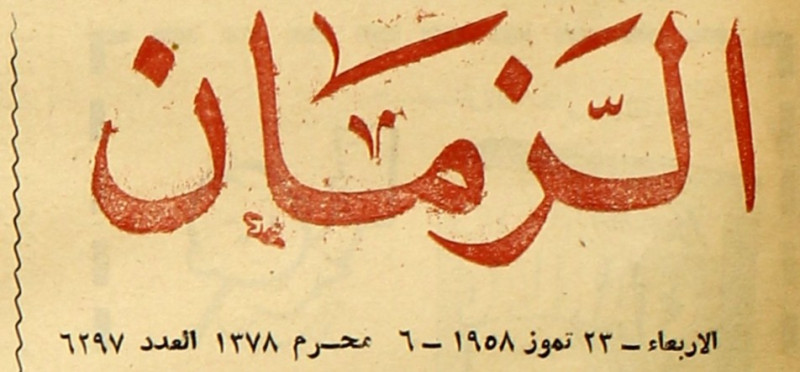 الزمان
الاربعاء – ٢٣ تموز ١٩٥٨ – ٦ محرم ١٣٧٨ العدد ٦٢٩٧